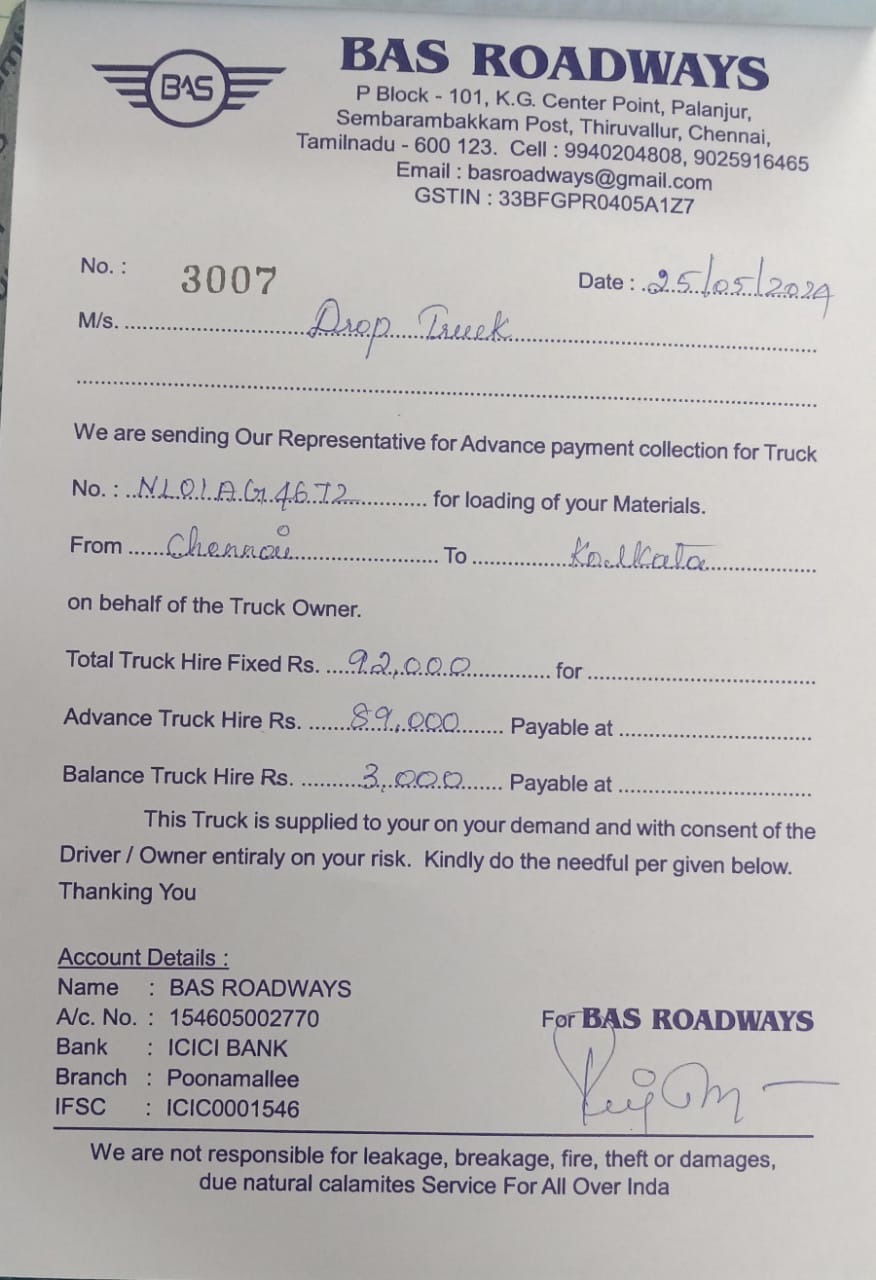 BAS
BAS ROADWAYS
P Block - 101, K.G. Center Point, Palanjur,
Sembarambakkam Post, Thiruvallur, Chennai,
Tamilnadu - 600 123. Cell : 9940204808, 9025916465
Email : basroadways@gmail.com
GSTIN : 33BFGPR0405A1Z7
No. : 3007 Date : 25/05/2024
M/s. Drop Truck
We are sending Our Representative for Advance payment collection for Truck
No. : NL01AG4672 for loading of your Materials.
From Chennai To Kolkata
on behalf of the Truck Owner.
Total Truck Hire Fixed Rs. 92,000 for
Advance Truck Hire Rs. 89,000 Payable at
Balance Truck Hire Rs. 3,000 Payable at
This Truck is supplied to your on your demand and with consent of the
Driver / Owner entiraly on your risk. Kindly do the needful per given below.
Thanking You
Account Details :
Name : BAS ROADWAYS
A/c. No. : 154605002770
Bank : ICICI BANK
Branch : Poonamallee
IFSC : ICIC0001546
For BAS ROADWAYS
We are not responsible for leakage, breakage, fire, theft or damages,
due natural calamites Service For All Over Inda